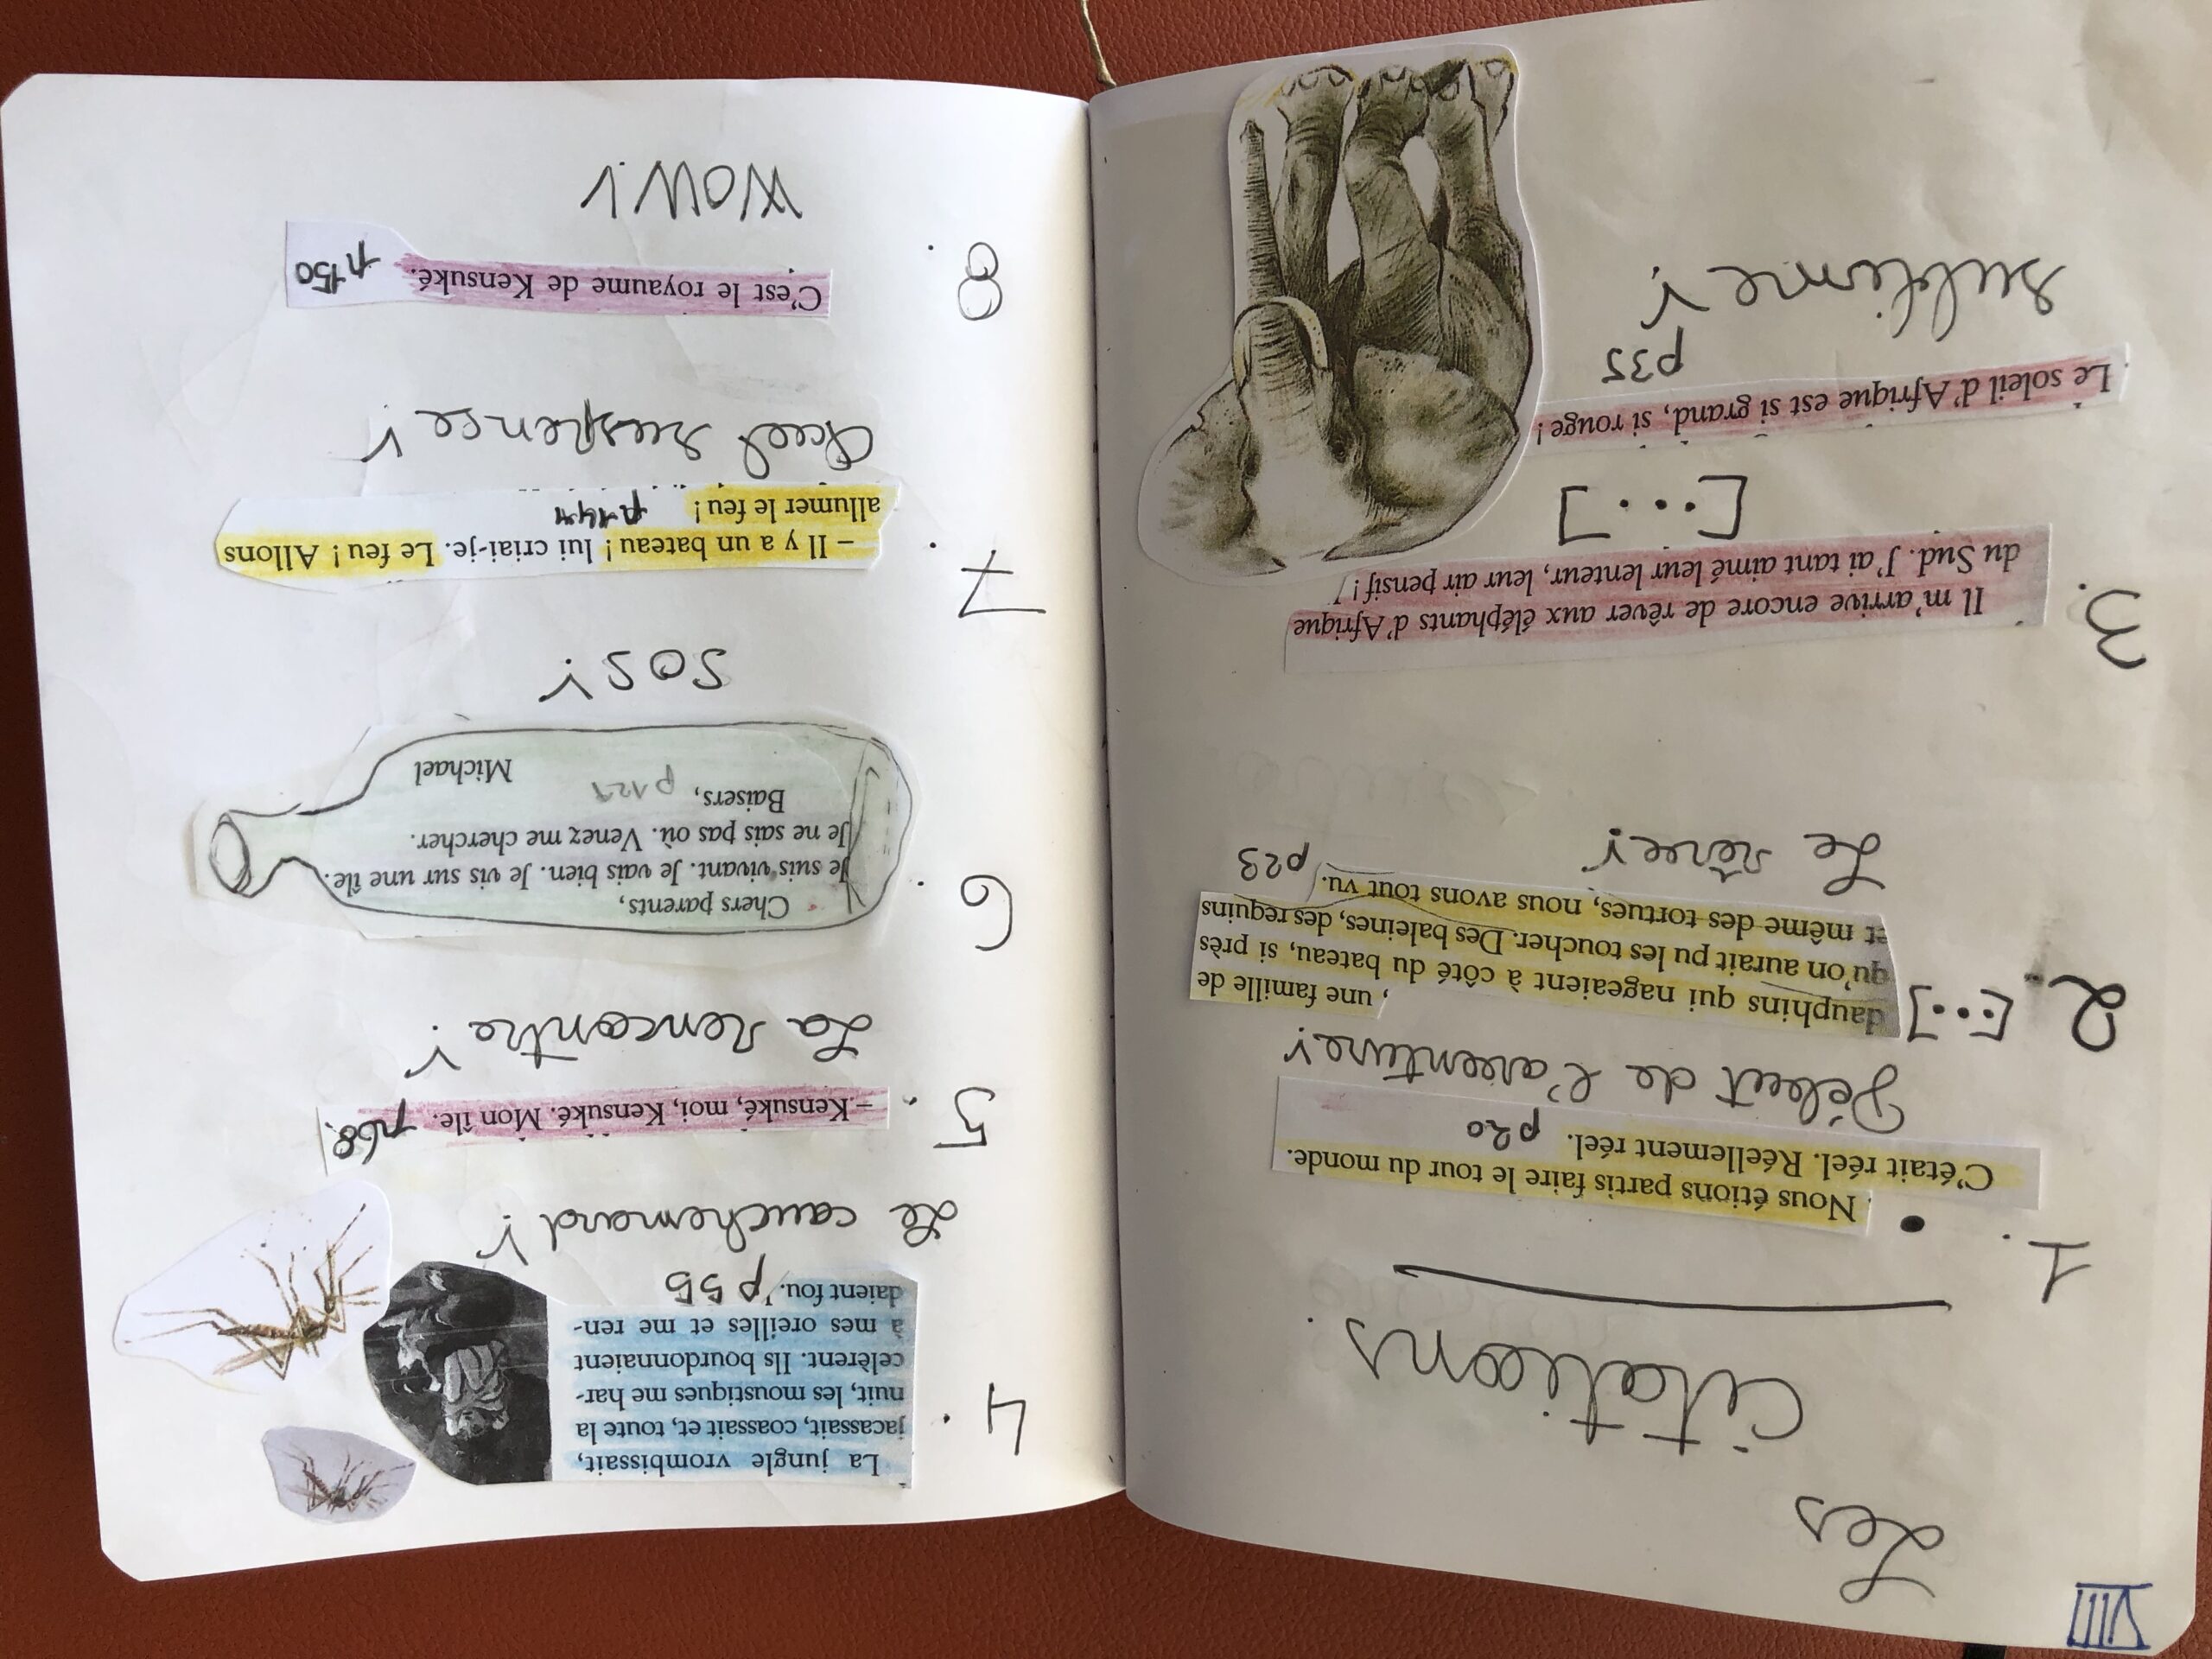 VIII
Les
citations
1.
• Nous étions partis faire le tour du monde.
C'était réel. Réellement réel. p20
Début de l'aventure!
2. [...]
, une famille de
dauphins qui nageaient à côté du bateau, si près
qu'on aurait pu les toucher. Des baleines, des requins
et même des tortues, nous avons tout vu. p23
Le rêve!
3.
Il m'arrive encore de rêver aux éléphants d'Afrique
du Sud. J'ai tant aimé leur lenteur, leur air pensif!
[...]
Le soleil d'Afrique est si grand, si rouge !
p35
sublime!
4.
La jungle vrombissait,
jacassait, coassait et, toute la
nuit, les moustiques me har-
celèrent. Ils bourdonnaient
à mes oreilles et me ren-
daient fou. p55
Le cauchemard!
5. – Kensuké, moi, Kensuké. Mon île. p68.
La rencontre!
6.
Chers parents,
Je suis vivant. Je vais bien. Je vis sur une île.
Je ne sais pas où. Venez me chercher.
Baisers, p121
Michael
SOS!
7.
– Il y a un bateau ! lui criai-je. Le feu ! Allons
allumer le feu ! p144
Quel suspense!
8.
C'est le royaume de Kensuké. p150
WOW!